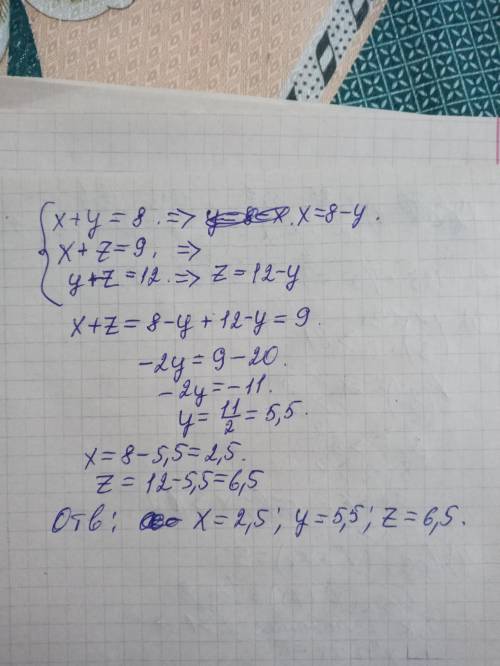 x+y=8. => x=8-y.
x+z=9. =>
y+z=12. => z=12-y
x+z=8-y+12-y=9.
-2y=9-20.
-2y=-11.
y=11/2=5,5.
x=8-5,5=2,5.
z=12-5,5=6,5
Отв: x=2,5; y=5,5; z=6,5.